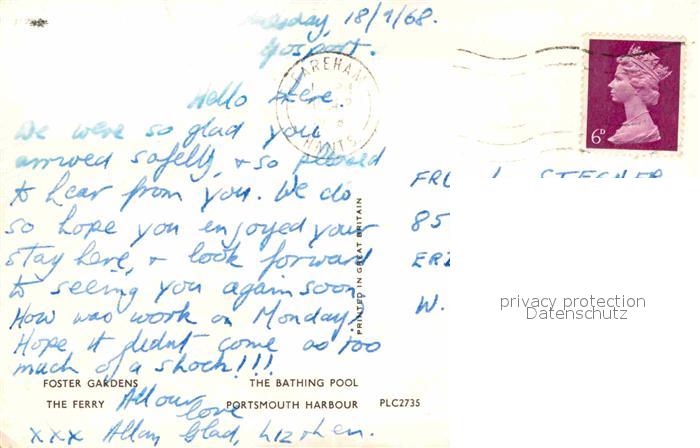 18/9/68.
Gosport.
Hello there.
We were so glad you
arrived safely, + so pleased
to hear from you. We do
so hope you enjoyed your
stay here, + look forward
to seeing you again soon.
How was work on Monday?
Hope it didnt come as too
much of a shock!!!
All our
love
xxx
FOSTER GARDENS
THE BATHING POOL
THE FERRY
PORTSMOUTH HARBOUR
PLC2735
PRINTED IN GREAT BRITAIN
FAREHAM
HANTS
6D
85
W.
privacy protection
Datenschutz